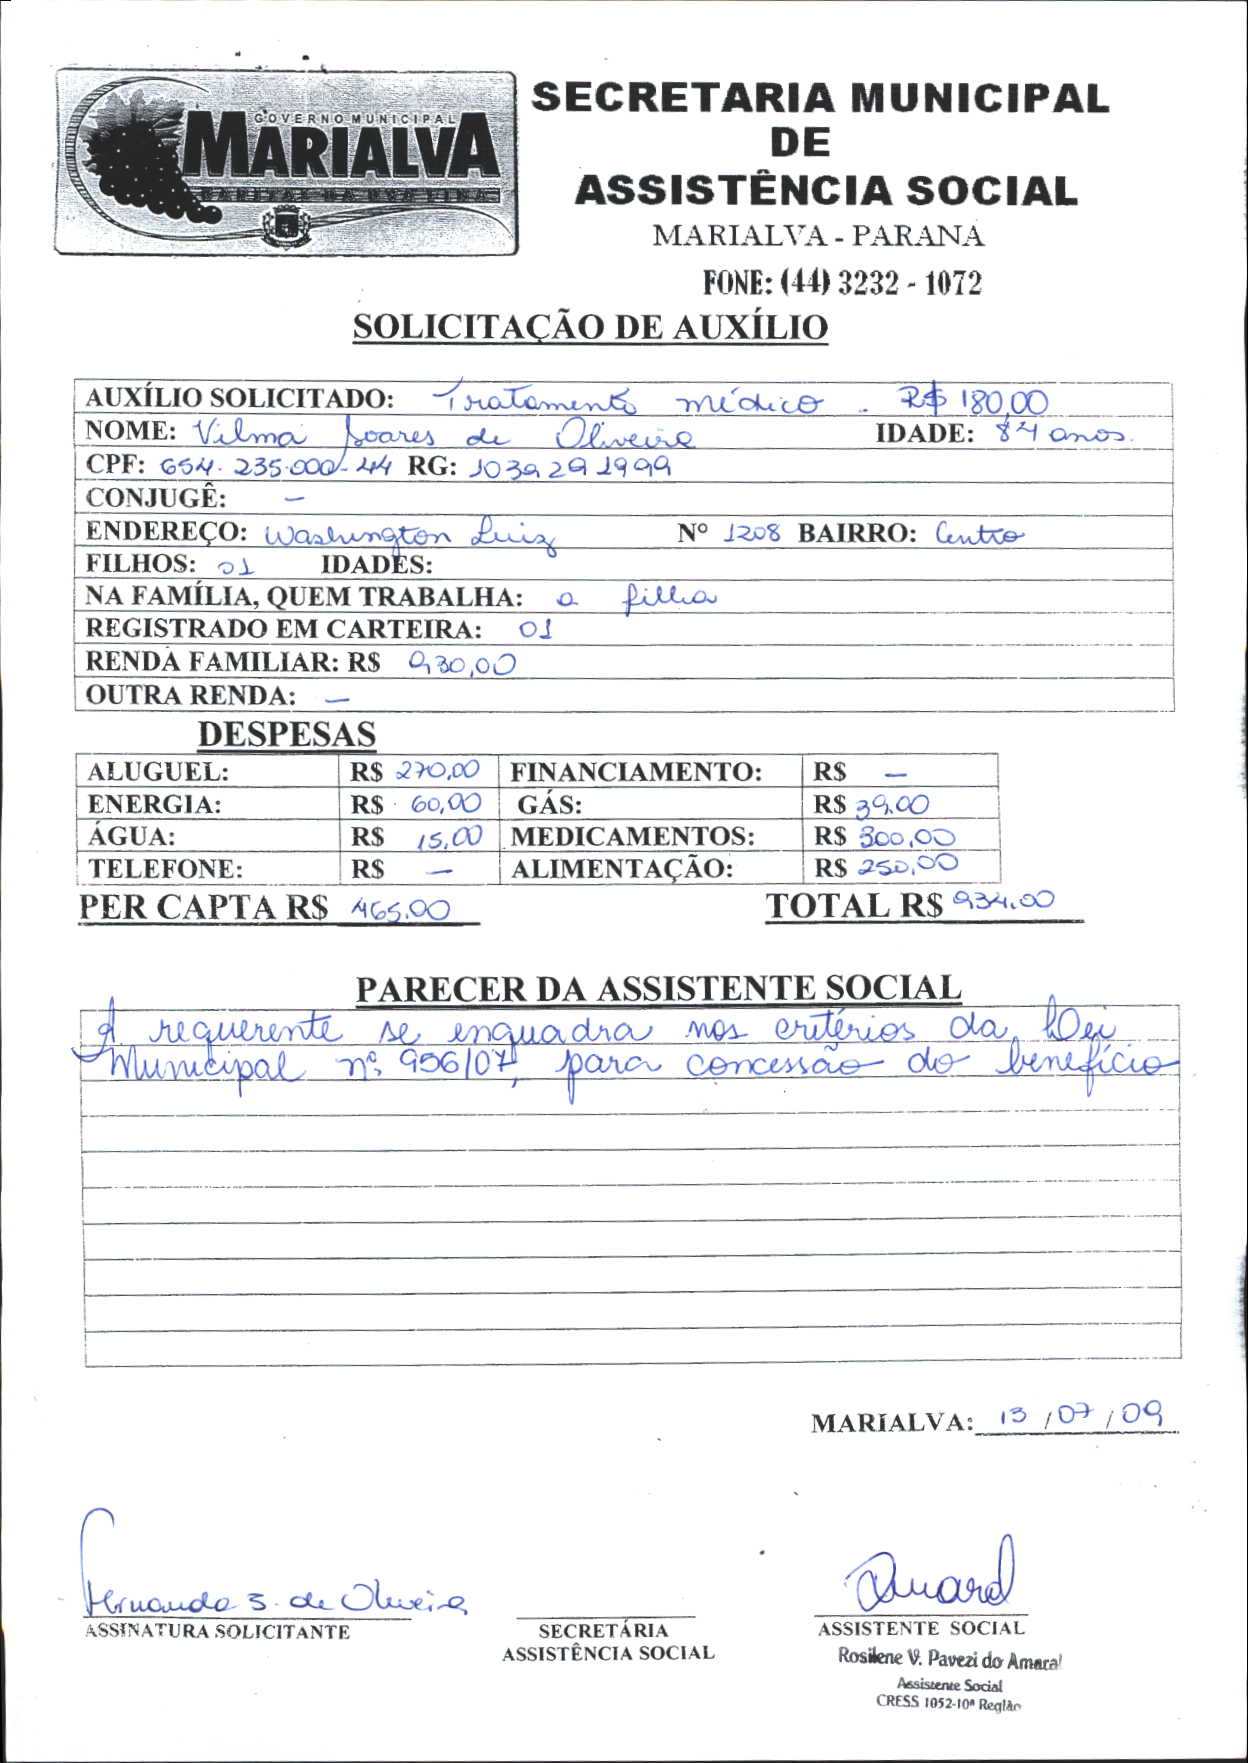 GOVERNO MUNICIPAL
MARIALVA
SECRETARIA MUNICIPAL
DE
ASSISTÊNCIA SOCIAL
MARIALVA - PARANÁ
FONE: (44) 3232 - 1072
SOLICITAÇÃO DE AUXÍLIO
AUXÍLIO SOLICITADO: Tratamento médico . R$ 180,00
NOME: Vilma Soares de Oliveira IDADE: 84 anos.
CPF: 654.235.000-44 RG: 1039291999
CONJUGÊ: -
ENDEREÇO: Washington Luiz Nº 1208 BAIRRO: Centro
FILHOS: 01 IDADES:
NA FAMÍLIA, QUEM TRABALHA: a filha
REGISTRADO EM CARTEIRA: 01
RENDA FAMILIAR: R$ 930,00
OUTRA RENDA: -
DESPESAS
ALUGUEL: R$ 270,00 FINANCIAMENTO: R$ -
ENERGIA: R$ 60,00 GÁS: R$ 39,00
ÁGUA: R$ 15,00 MEDICAMENTOS: R$ 300,00
TELEFONE: R$ - ALIMENTAÇÃO: R$ 250,00
PER CAPTA R$ 465,00 TOTAL R$ 934,00
PARECER DA ASSISTENTE SOCIAL
A requerente se enquadra nos critérios da Lei
Municipal nº 956/07, para concessão do benefício
MARIALVA: 13 / 07 / 09
Fernanda S. de Oliveira
ASSINATURA SOLICITANTE
SECRETÁRIA
ASSISTÊNCIA SOCIAL
ASSISTENTE SOCIAL
Rosilene V. Pavezi do Amaral
Assistente Social
CRESS 1052-10ª Região